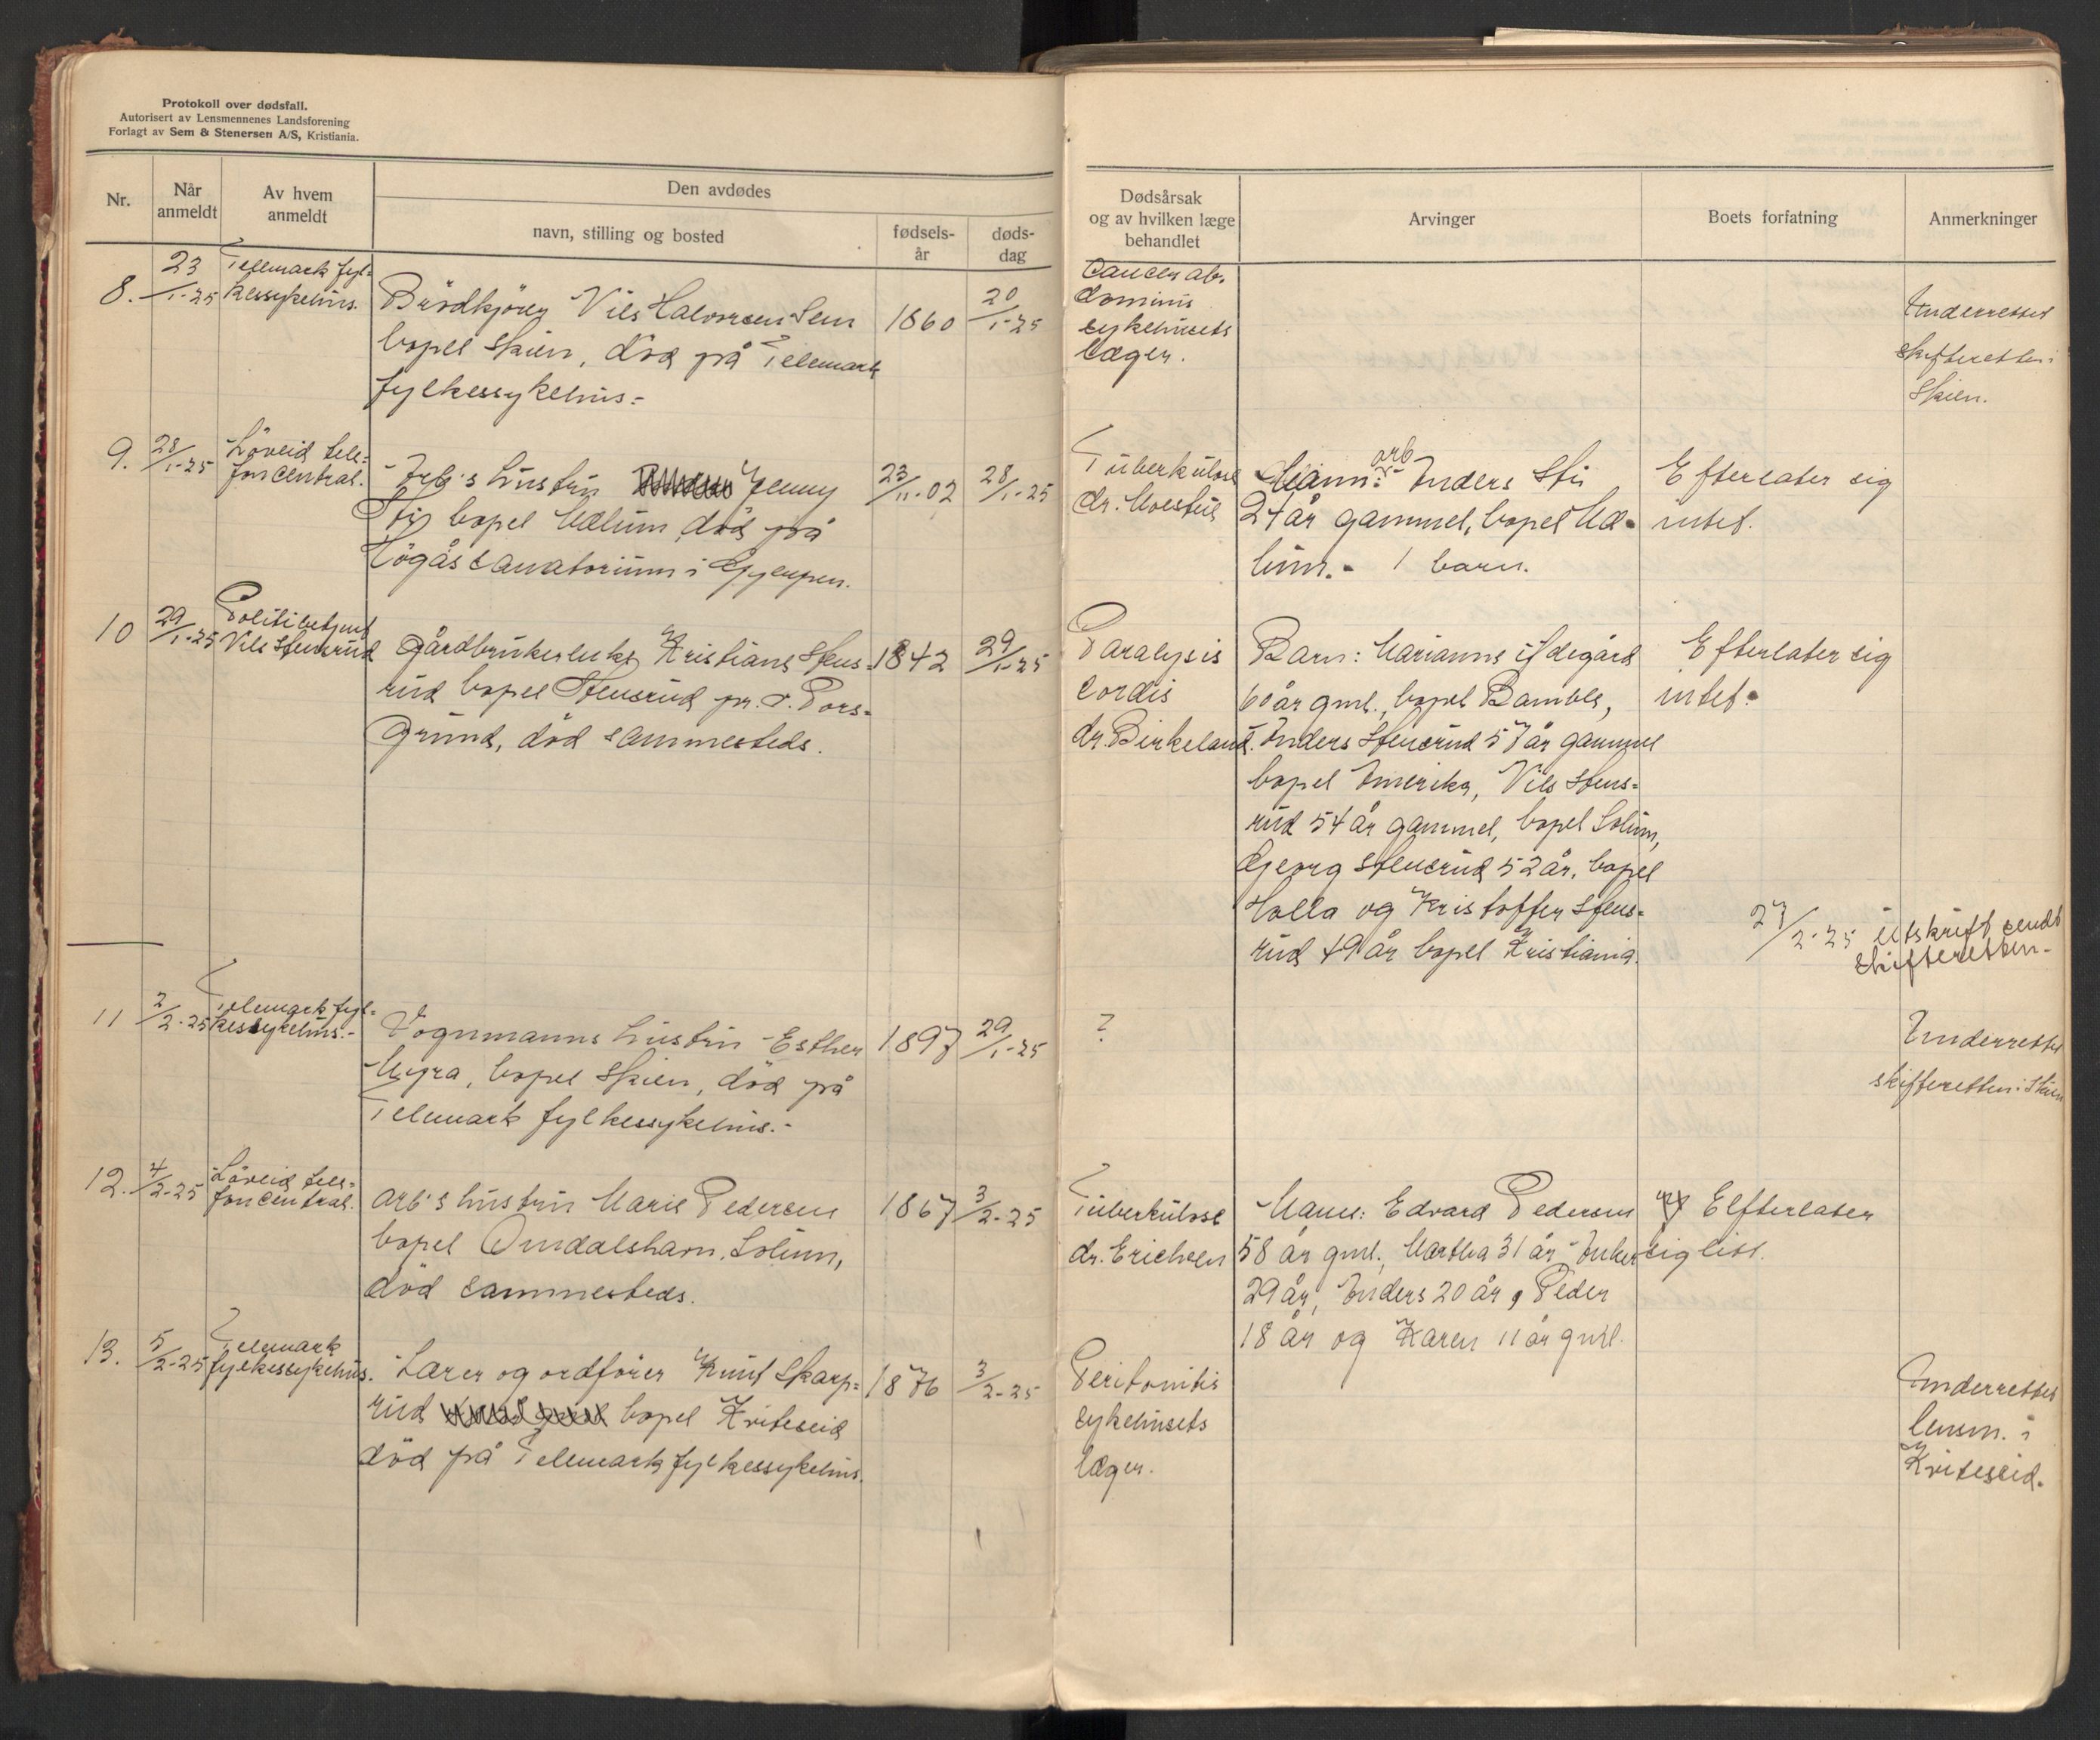 Protokoll over dødsfall.
Autorisert av Lensmennenes Landsforening
Forlagt av Sem & Stenersen A/S, Kristiania.
Nr.
Når anmeldt
Av hvem anmeldt
Den avdødes
navn, stilling og bosted
fødsels-år
døds-dag
Dødsårsak og av hvilken læge behandlet
Arvinger
Boets forfatning
Anmerkninger
8.
23/1-25
Telemark fyl=
kessykehus.
Brødkjörer Nils Halvorsen Sem
bopel Skien, död på Telemark
fylkessykehus.-
1860
20/1-25
Cancer ab-
dominis
sykehusets
læger.
Underrettet
skifteretten i
Skien.
9.
28/1-25
Löveid tele=
foncentral.
Arb's hustru Jenny
Sti, bopel Mælum, död på
Högås sanatorium i Gjerpen.
23/11-02
28/1-25
Tuberkulose
dr. Moestue
Mann: arb. Anders Sti
24 år gammel, bopel Mæ-
lum.- 1 barn.
Efterlater sig
intet.
10
29/1-25
Politibetjent
Nils Stensrud
Gårdbrukerenke Kristiane Stens-
rud bopel Stensrud pr. Pors=
grund, död sammesteds.
1842
29/1-25
Paralysis
cordis
dr. Birkeland.
Barn: Marianne
60 år gml., bopel Bamble,
Anders Stensrud 57 år gammel
bopel Amerika, Nils Stens=
rud 54 år gammel, bopel Solum,
Georg Stensrud 52 år, bopel
Holla og Kristoffer Stens=
rud 49 år bopel Kristiania.
Efterlater sig
intet.
27/2-25 utskrift sendt
skifteretten.-
11
2/2-25
Telemark fyl=
kessykehus.-
Vognmanns hustru Esther
Myra, bopel Skien, död på
Telemark fylkessykehus.-
1897
29/1-25
?
Underrettet
skifteretten i Skien
12.
4/2-25
Löveid tele=
foncentral.
Arb's hustru Marie Pedersen
bopel Omdalshavn, Solum,
död sammesteds.
1867
3/2-25
Tuberkulose
dr. Erichsen
Mann: Edvard Pedersen
58 år gml., Martha 31 år Anker
29 år, Anders 20 år, Peder
18 år og Karen 11 år gml.
Efterlater
sig litt.
13.
5/2-25
Telemark
fylkessykehus.
Lærer og ordförer Knut Skarp=
rud bopel Kviteseid
död på Telemark fylkessykehus.
1876
3/2-25
Peritonitis
sykehusets
læger.
Underrettet
lensm. i
Kviteseid.